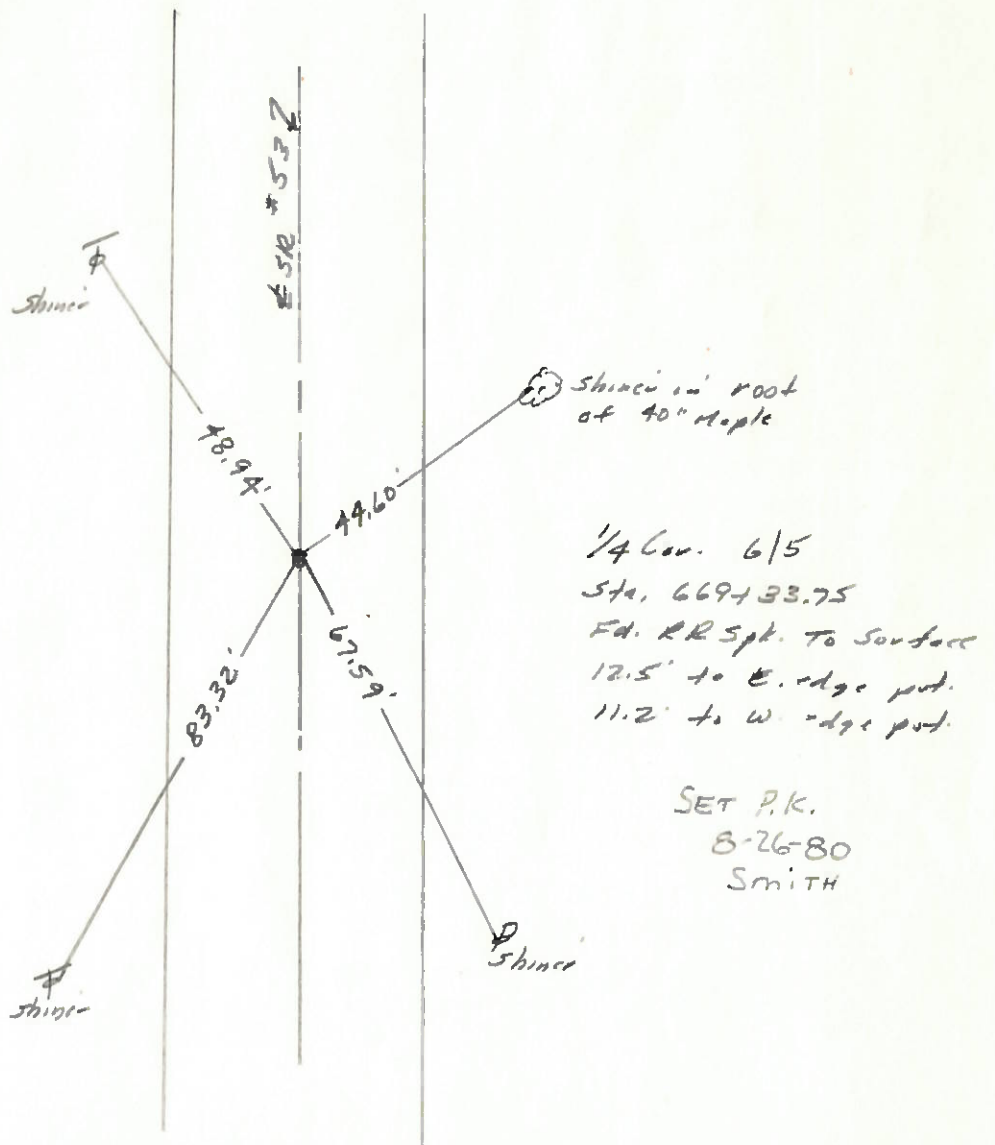 ℄ SR #537
shiner
48.94'
shiner in root
of 40" Maple
44.60'
1/4 Cor. 6/5
Sta. 669+33.75
Fd. RR Spk. To Surface
12.5' to E. edge pvt.
11.2' to W. edge pvt.
67.59'
83.32'
SET P.K.
8-26-80
SmiTH
shiner
shiner